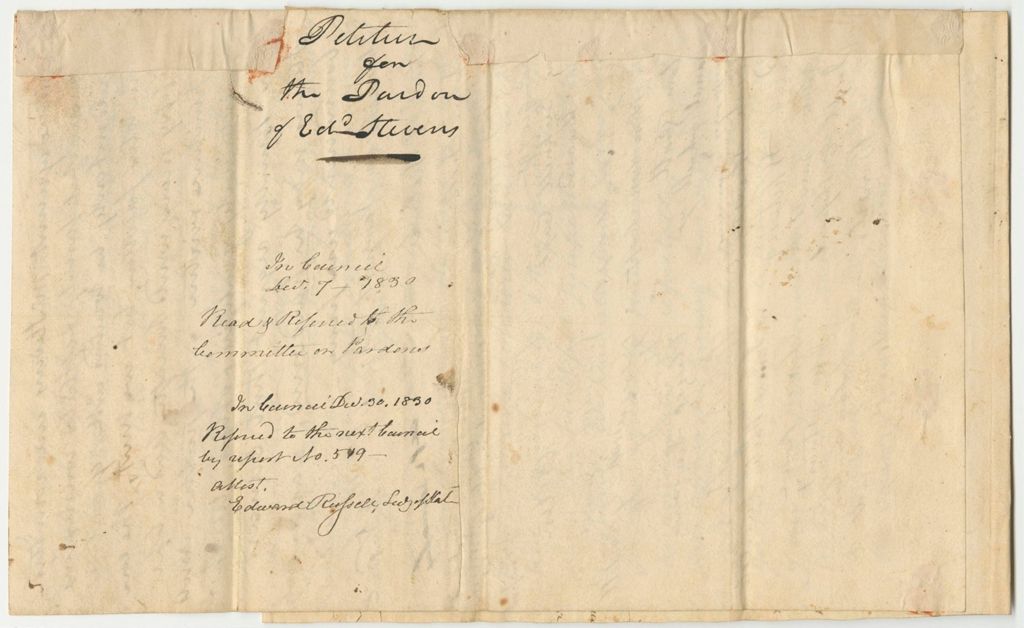 Petition
for
the Pardon
of Edd Stevens
In Council
Dec. 7 - 1830
Read & Referred to the
Committee on Pardons
In Council Dec. 30. 1830
Referred to the next Council
by report No. 519 -
Attest.
Edward Russell, Secy of State